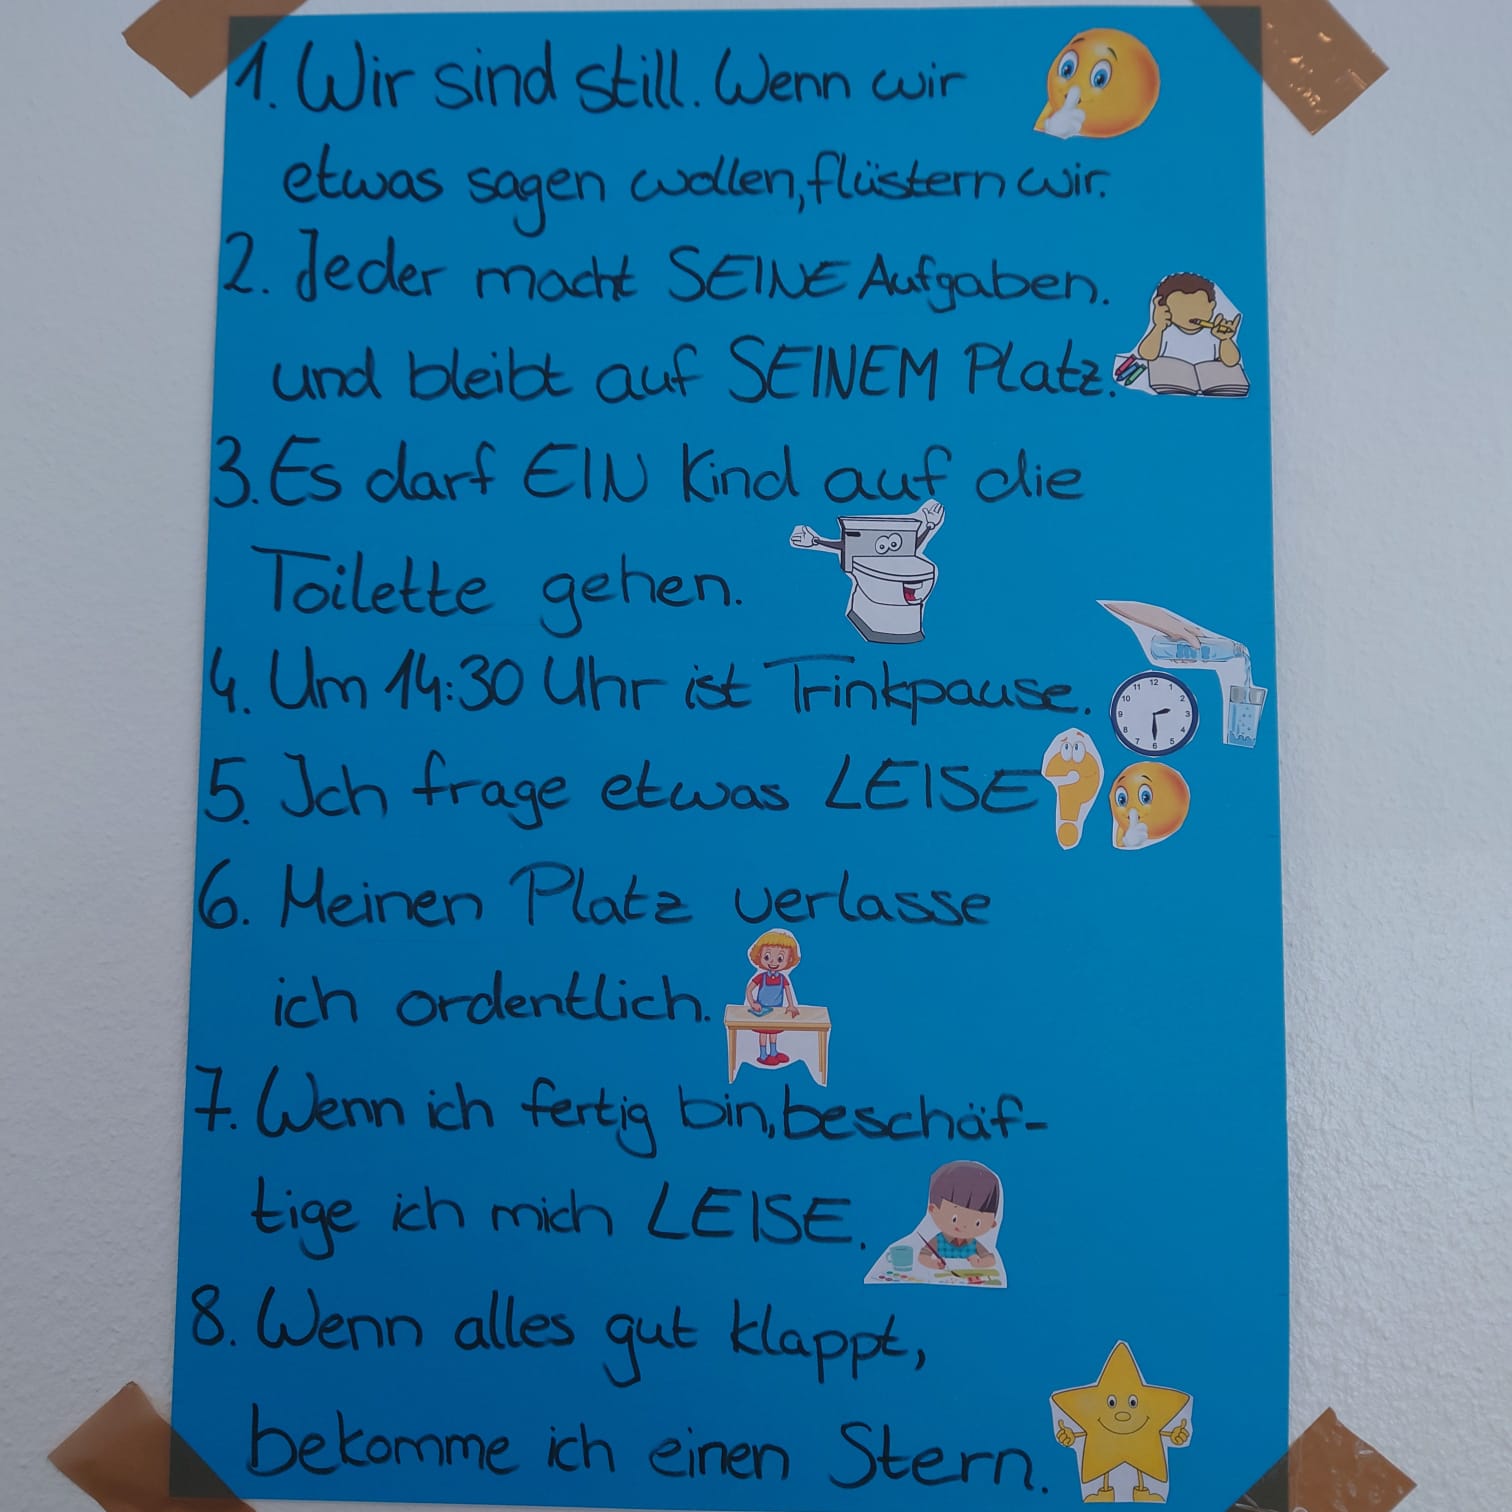 1. Wir sind still. Wenn wir
etwas sagen wollen, flüstern wir.
2. Jeder macht SEINE Aufgaben.
und bleibt auf SEINEM Platz.
3. Es darf EIN Kind auf die
Toilette gehen.
4. Um 14:30 Uhr ist Trinkpause.
12 1 2 3 4 5 6 7 8 9 10 11
5. Ich frage etwas LEISE
6. Meinen Platz verlasse
ich ordentlich.
7. Wenn ich fertig bin, beschäf-
tige ich mich LEISE.
8. Wenn alles gut klappt,
bekomme ich einen Stern.